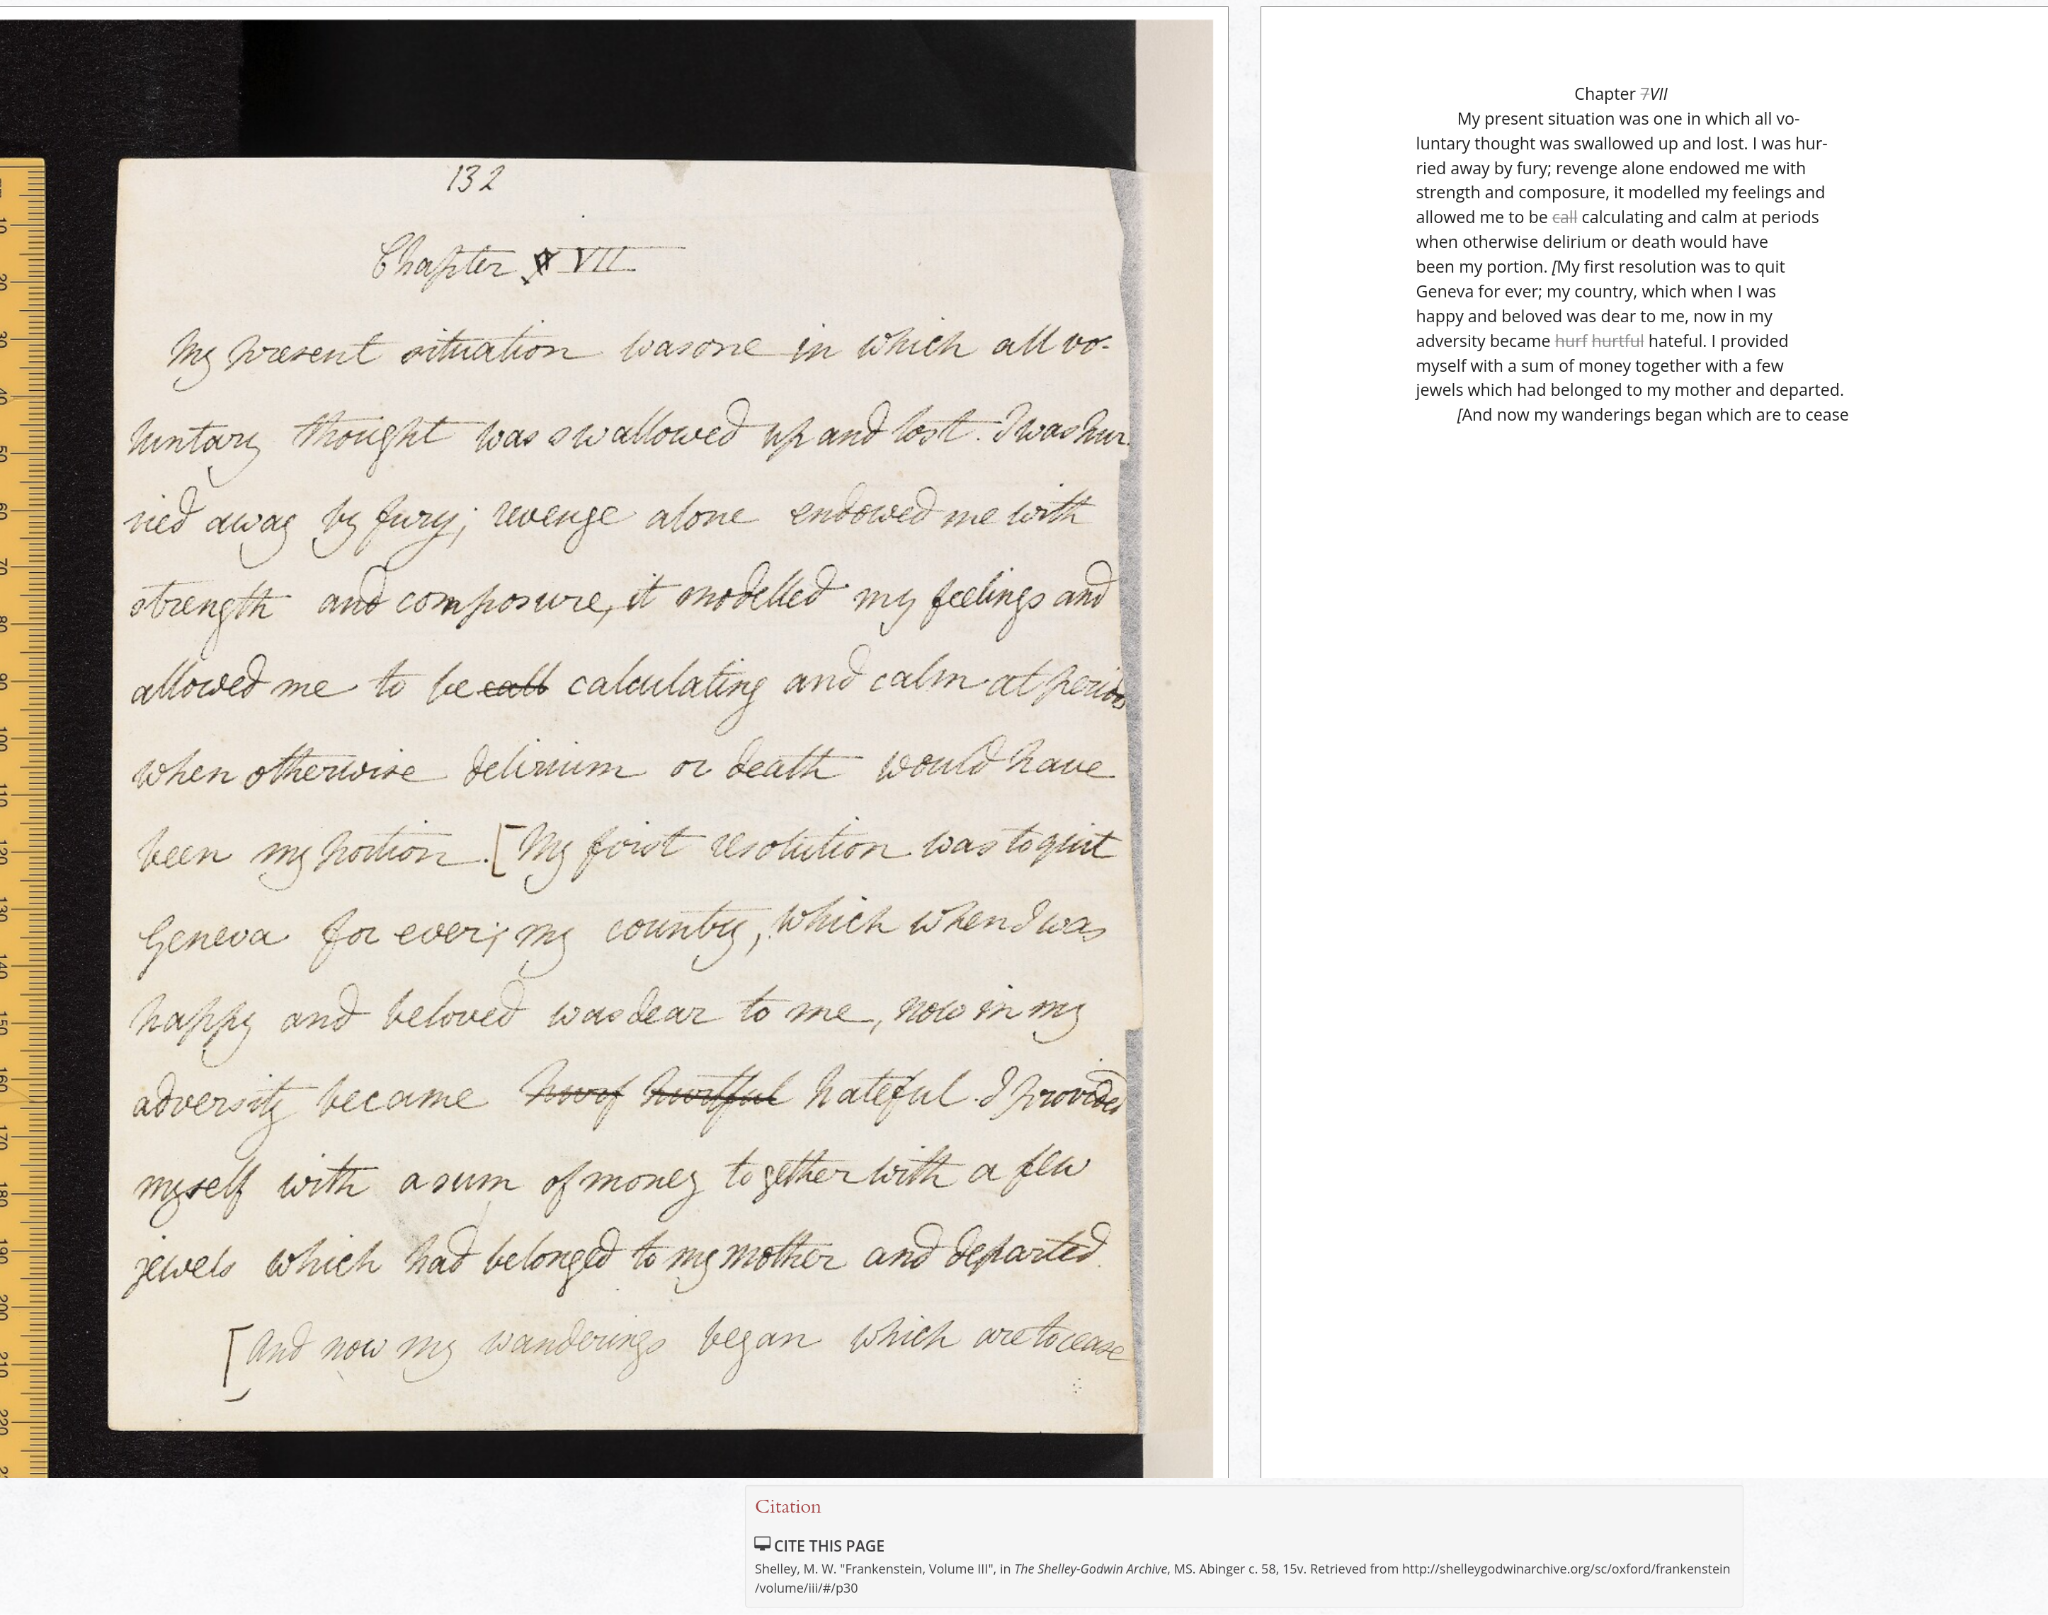 132
Chapter 7 VII
My present situation was one in which all vo-
luntary thought was swallowed up and lost. I was hur-
ried away by fury; revenge alone endowed me with
strength and composure, it modelled my feelings and
allowed me to be call calculating and calm at periods
when otherwise delirium or death would have
been my portion. [My first resolution was to quit
Geneva for ever; my country, which when I was
happy and beloved was dear to me, now in my
adversity became hurf hurtful hateful. I provided
myself with a sum of money together with a few
jewels which had belonged to my mother and departed.
[And now my wanderings began which are to cease
10
20
30
40
50
60
70
80
90
100
110
120
130
140
150
160
170
180
190
200
210
220
Chapter 7VII
My present situation was one in which all vo-
luntary thought was swallowed up and lost. I was hur-
ried away by fury; revenge alone endowed me with
strength and composure, it modelled my feelings and
allowed me to be call calculating and calm at periods
when otherwise delirium or death would have
been my portion. [My first resolution was to quit
Geneva for ever; my country, which when I was
happy and beloved was dear to me, now in my
adversity became hurf hurtful hateful. I provided
myself with a sum of money together with a few
jewels which had belonged to my mother and departed.
[And now my wanderings began which are to cease
Citation
CITE THIS PAGE
Shelley, M. W. "Frankenstein, Volume III", in The Shelley-Godwin Archive, MS. Abinger c. 58, 15v. Retrieved from http://shelleygodwinarchive.org/sc/oxford/frankenstein
/volume/iii/#/p30